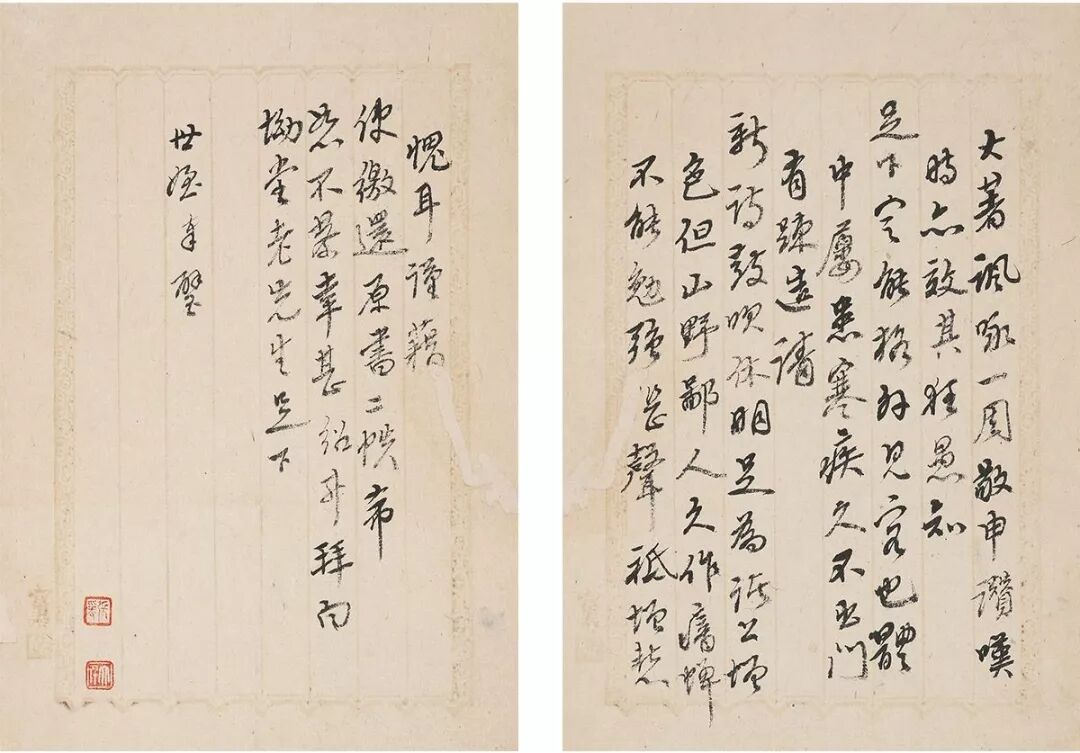 大著諷咏一周敬申讚嘆
時亦效其狂愚知
足下定能格外見容也體
中屢患寒疾久不出門
有疎造請
新詩鼓吹休明足為諸公增
色但山野鄙人久作瘖蟬
不能勉強發聲祗增慙
愧耳謹藉
使繳還原書二帙希
恕不恭幸甚紹升拜白
坳堂老先生足下
世